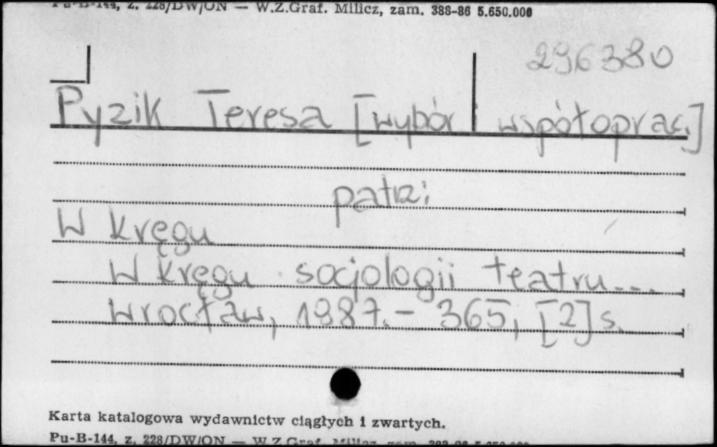 Pu-B-144, z. 228/DW/ON — W.Z.Graf. Milicz, zam. 388-86 5.650.000
296380
Pyzik Teresa [wybór współoprac.]
patrz:
W kręgu
W kręgu socjologii teatru...
Wrocław, 1987.- 365, [2] s.
Karta katalogowa wydawnictw ciągłych i zwartych.
Pu-B-144, z. 228/DW/ON — W.Z.Graf. Milicz, zam. 388-86 5.650.000